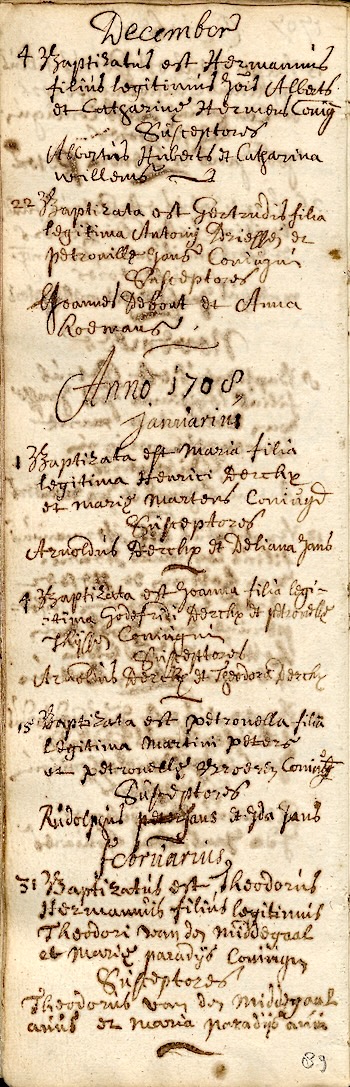 December
4 Baptizatus est Hermannus
filius legitimus Jois Alberts
et Catharinę Hermens Coniug
Susceptores
Albertus Huberts et Catharina
willems
22 Baptizata est Gertrudis filia
legitima Antonij Driessen et
petronillę Jans Coniugum
Susceptores
Joannes Debout et Anna
Roemans
Anno 1708,
Januarius
1 Baptizata est Maria filia
legitima Henrici Derckx
et marię Martens Coniugū
Susceptores
Arnoldus Derckx et Deliana Jans
4 Baptizata est Joanna filia legi-
-tima Godefridi Derckx et petronellę
Thijssen Coniugum
Susceptores
Arnoldus Derckx et Theodora Derckx
15 Baptizata est petronella filia
legitima Martini peters
et petronellę Broeren Coniug
Susceptores
Rudolphus Jans et Ida Jans
februarius,
31 Baptizatus est Theodorus
Hermannus filius legitimus
Theodori van den Middegaal
et Marię paradijs Coniugū
Susceptores
Theodorus van den Middegaal
avus et maria paradijs avia
89